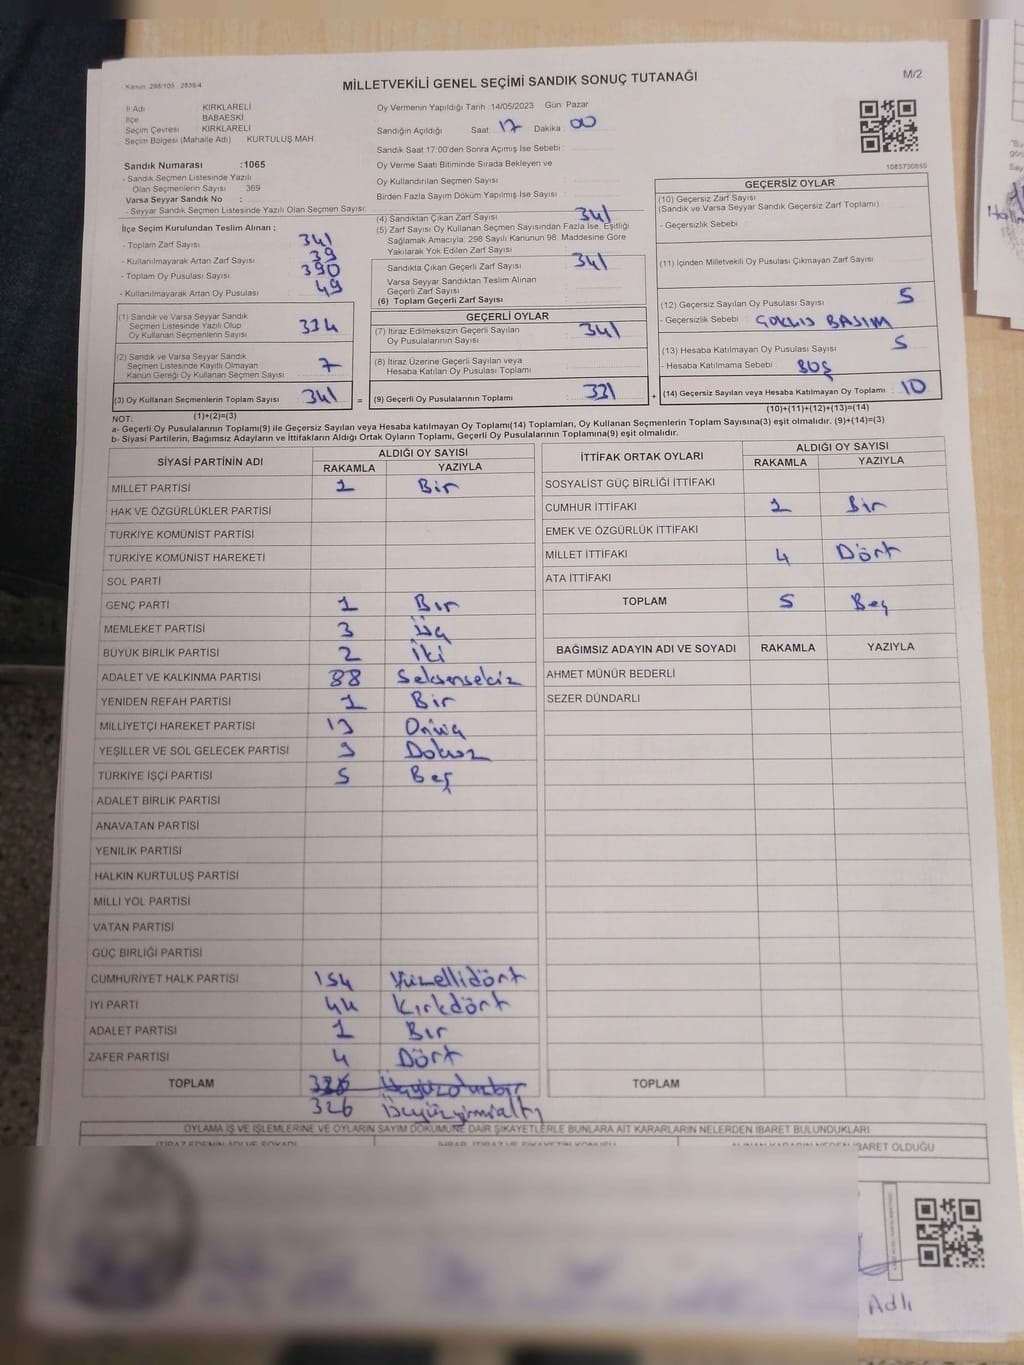 Kanun: 298/105 2839/4
MİLLETVEKİLİ GENEL SEÇİMİ SANDIK SONUÇ TUTANAĞI
M/2
İl Adı : KIRKLARELİ
İlçe : BABAESKİ
Seçim Çevresi : KIRKLARELİ
Seçim Bölgesi (Mahalle Adı) : KURTULUŞ MAH
Oy Vermenin Yapıldığı Tarih : 14/05/2023 Gün: Pazar
Sandığın Açıldığı Saat: 17 Dakika: 00
Sandık Saat 17:00'den Sonra Açımış İse Sebebi :
Oy Verme Saati Bitiminde Sırada Bekleyen ve
Oy Kullandırılan Seçmen Sayısı
Birden Fazla Sayım Döküm Yapılmış İse Sayısı :
1083730860
Sandık Numarası :1065
- Sandık Seçmen Listesinde Yazılı
Olan Seçmenlerin Sayısı 369
Varsa Seyyar Sandık No :
- Seyyar Sandık Seçmen Listesinde Yazılı Olan Seçmen Sayısı:
İlçe Seçim Kurulundan Teslim Alınan ;
- Toplam Zarf Sayısı 341
- Kullanılmayarak Artan Zarf Sayısı : 39
- Toplam Oy Pusulası Sayısı : 390
- Kullanılmayarak Artan Oy Pusulası : 49
(1) Sandık ve Varsa Seyyar Sandık
Seçmen Listesinde Yazılı Olup
Oy Kullanan Seçmenlerin Sayısı : 334
(2) Sandık ve Varsa Seyyar Sandık
Seçmen Listesinde Kayıtlı Olmayan
Kanun Gereği Oy Kullanan Seçmen Sayısı : 7
(3) Oy Kullanan Seçmenlerin Toplam Sayısı : 341
(4) Sandıktan Çıkan Zarf Sayısı 341
(5) Zarf Sayısı Oy Kullanan Seçmen Sayısından Fazla İse, Eşitliği
Sağlamak Amacıyla; 298 Sayılı Kanunun 98. Maddesine Göre
Yakılarak Yok Edilen Zarf Sayısı
Sandıkta Çıkan Geçerli Zarf Sayısı : 341
Varsa Seyyar Sandıktan Teslim Alınan
Geçerli Zarf Sayısı
(6) Toplam Geçerli Zarf Sayısı
GEÇERLİ OYLAR
(7) İtiraz Edilmeksizin Geçerli Sayılan
Oy Pusulalarının Sayısı : 341
(8) İtiraz Üzerine Geçerli Sayılan veya
Hesaba Katılan Oy Pusulası Toplamı
= (9) Geçerli Oy Pusulalarının Toplamı : 331 +
GEÇERSİZ OYLAR
(10) Geçersiz Zarf Sayısı
(Sandık ve Varsa Seyyar Sandık Geçersiz Zarf Toplamı) :
- Geçersizlik Sebebi :
(11) İçinden Milletvekili Oy Pusulası Çıkmayan Zarf Sayısı
(12) Geçersiz Sayılan Oy Pusulası Sayısı : 5
- Geçersizlik Sebebi :
(13) Hesaba Katılmayan Oy Pusulası Sayısı : 5
- Hesaba Katılmama Sebebi : BOŞ
(14) Geçersiz Sayılan veya Hesaba Katılmayan Oy Toplamı : 10
NOT: (1)+(2)=(3)
(10)+(11)+(12)+(13)=(14)
a- Geçerli Oy Pusulalarının Toplamı(9) ile Geçersiz Sayılan veya Hesaba katılmayan Oy Toplamı(14) Toplamları, Oy Kullanan Seçmenlerin Toplam Sayısına(3) eşit olmalıdır. (9)+(14)=(3)
b- Siyasi Partilerin, Bağımsız Adayların ve İttifakların Aldığı Ortak Oyların Toplamı, Geçerli Oy Pusulalarının Toplamına(9) eşit olmalıdır.
SİYASİ PARTİNİN ADI ALDIĞI OY SAYISI
RAKAMLA YAZIYLA
MİLLET PARTİSİ 1 Bir
HAK VE ÖZGÜRLÜKLER PARTİSİ
TÜRKİYE KOMÜNİST PARTİSİ
TÜRKİYE KOMÜNİST HAREKETİ
SOL PARTİ
GENÇ PARTİ 1 Bir
MEMLEKET PARTİSİ 3 Üç
BÜYÜK BİRLİK PARTİSİ 2 İki
ADALET VE KALKINMA PARTİSİ 88 Seksensekiz
YENİDEN REFAH PARTİSİ 1 Bir
MİLLİYETÇİ HAREKET PARTİSİ 13 Onüç
YEŞİLLER VE SOL GELECEK PARTİSİ 9 Dokuz
TÜRKİYE İŞÇİ PARTİSİ 5 Beş
ADALET BİRLİK PARTİSİ
ANAVATAN PARTİSİ
YENİLİK PARTİSİ
HALKIN KURTULUŞ PARTİSİ
MİLLİ YOL PARTİSİ
VATAN PARTİSİ
GÜÇ BİRLİĞİ PARTİSİ
CUMHURİYET HALK PARTİSİ 154 Yüzellidört
İYİ PARTİ 44 Kırkdört
ADALET PARTİSİ 1 Bir
ZAFER PARTİSİ 4 Dört
TOPLAM
326 Üçyüzyirmialtı
İTTİFAK ORTAK OYLARI ALDIĞI OY SAYISI
RAKAMLA YAZIYLA
SOSYALİST GÜÇ BİRLİĞİ İTTİFAKI
CUMHUR İTTİFAKI 1 Bir
EMEK VE ÖZGÜRLÜK İTTİFAKI
MİLLET İTTİFAKI 4 Dört
ATA İTTİFAKI
TOPLAM 5 Beş
BAĞIMSIZ ADAYIN ADI VE SOYADI RAKAMLA YAZIYLA
AHMET MÜNÜR BEDERLİ
SEZER DÜNDARLI
TOPLAM
OYLAMA İŞ VE İŞLEMLERİNE VE OYLARIN SAYIM DÖKÜMÜNE DAİR ŞİKAYETLERLE BUNLARA AİT KARARLARIN NELERDEN İBARET BULUNDUKLARI
İBARET OLDUĞU
Adlı